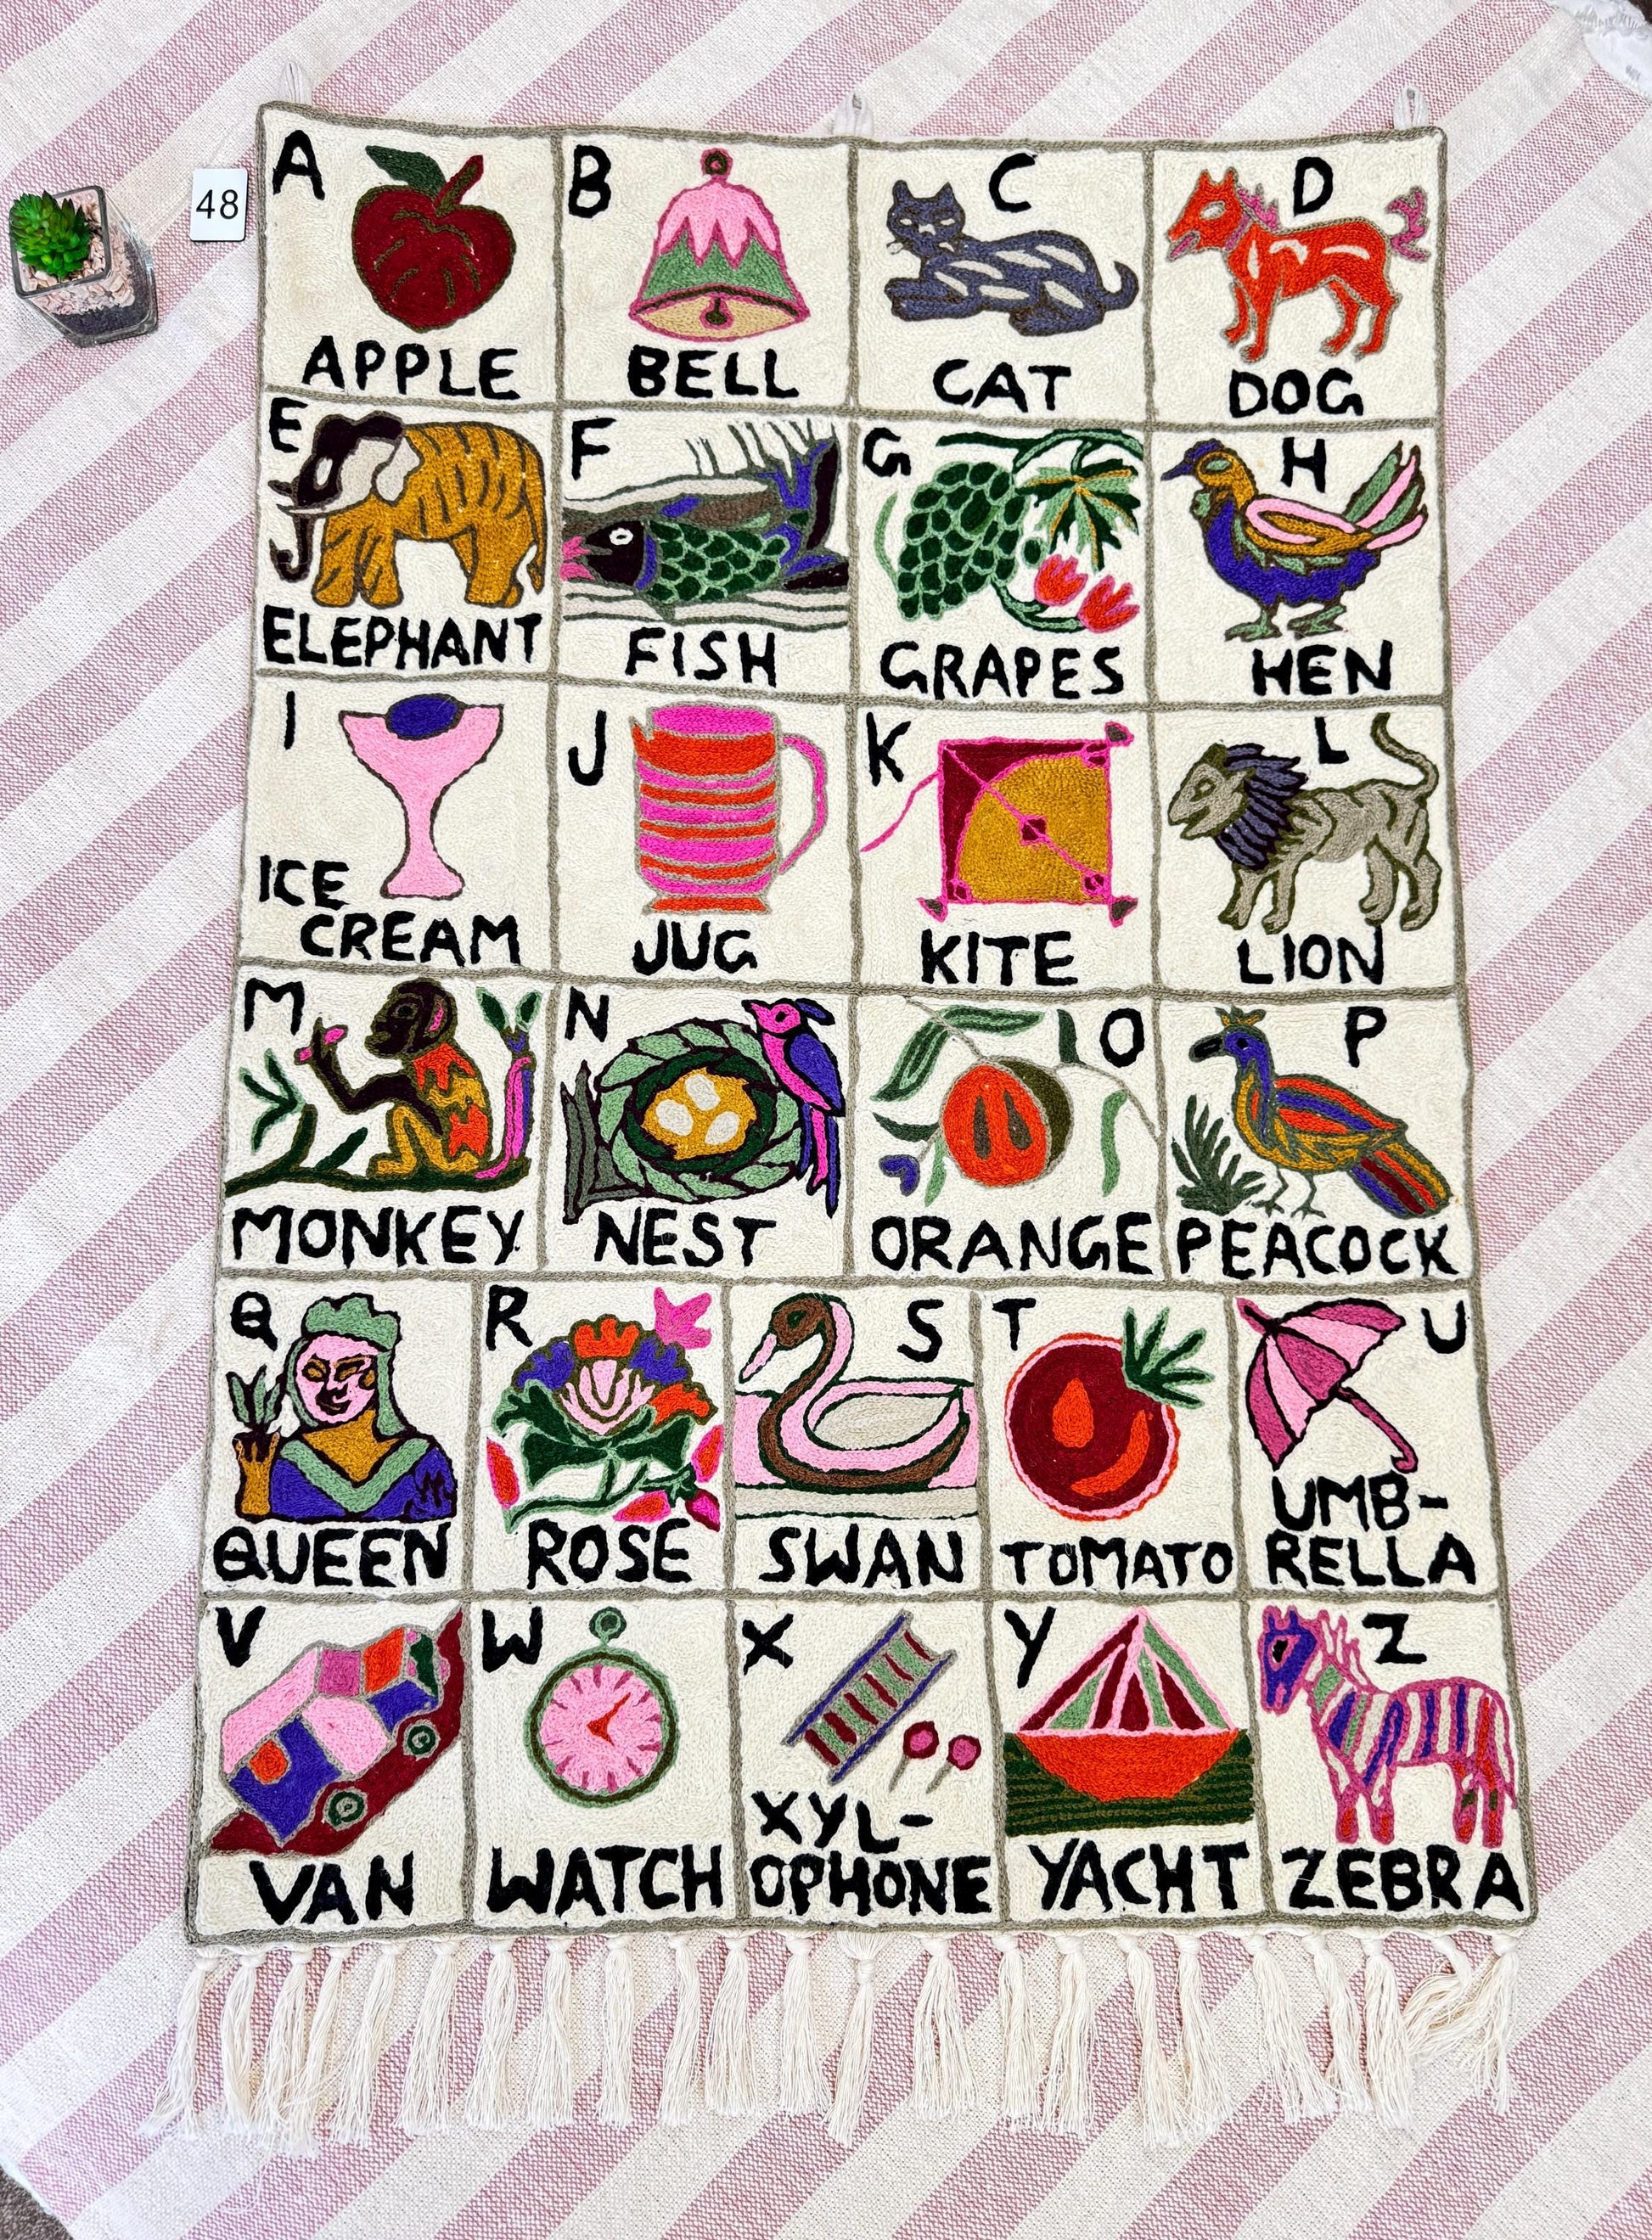 48
A
APPLE
B
BELL
C
CAT
D
DOG
E
ELEPHANT
F
FISH
G
GRAPES
H
HEN
I
ICE
CREAM
J
JUG
K
KITE
L
LION
M
MONKEY
N
NEST
O
ORANGE
P
PEACOCK
Q
QUEEN
R
ROSE
S
SWAN
T
TOMATO
U
UMB-
RELLA
V
VAN
W
WATCH
X
XYL-
OPHONE
Y
YACHT
Z
ZEBRA